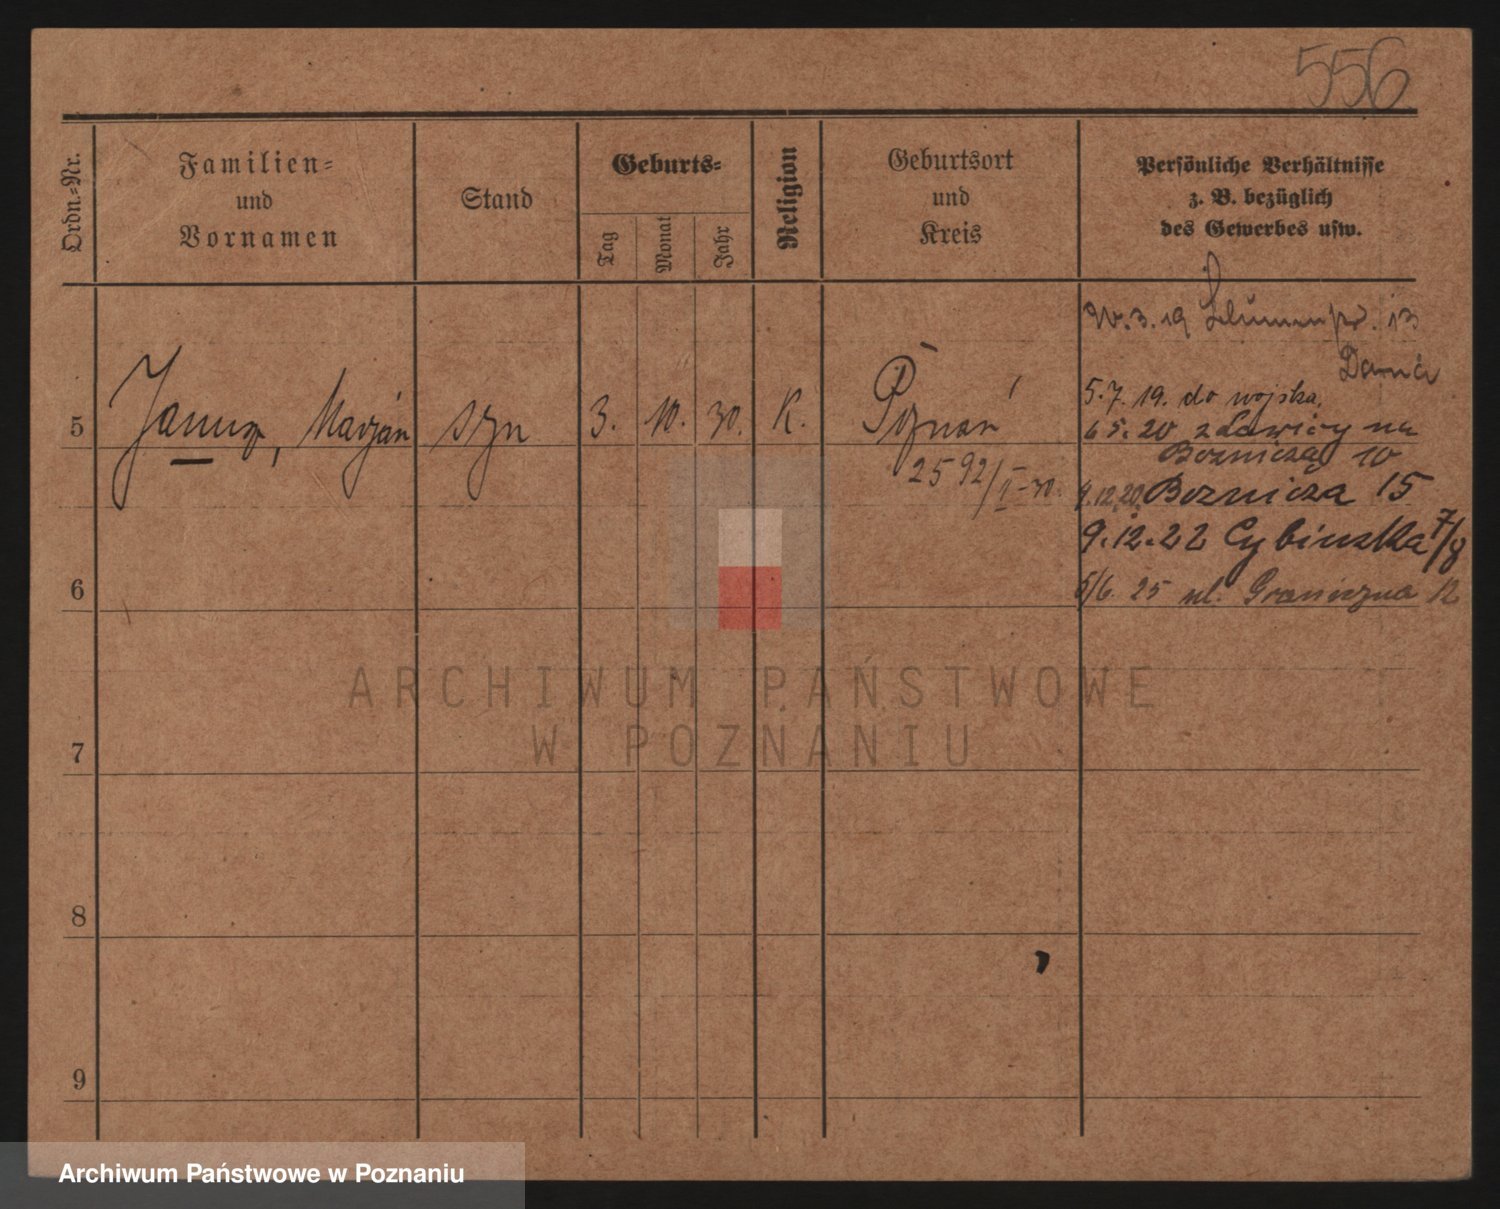 556
Ordn.-Nr.
Familien-
und
Vornamen
Stand
Geburts-
Tag
Monat
Jahr
Religion
Geburtsort
und
Kreis
Persönliche Verhältnisse
z. B. bezüglich
des Gewerbes usw.
3. 19 13
5.7. 19. do wojska.
5 Marjan syn 3. 10. 30. K. Poznań
5. 20 z Ławicy na
Bożniczą 10
2592/II-30.
9.12.20. Boznicza 15
9.12.22 Cybińska 7/8
5/6. 25 ul. Graniczna 12
6
7
8
9
ARCHIWUM PAŃSTWOWE
W POZNANIU
Archiwum Państwowe w Poznaniu